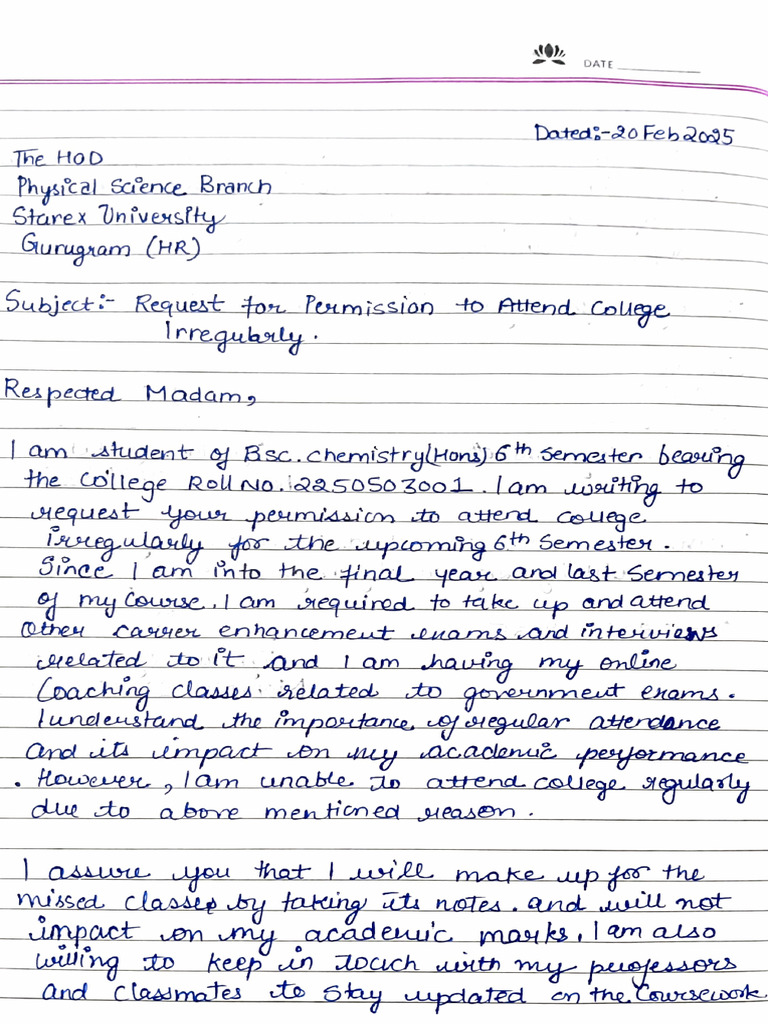 DATE
Dated:-20 Feb 2025
The HOD
Physical Science Branch
Starex University
Gurugram (HR)
Subject:- Request for Permission to Attend College
Irregularly.
Respected Madam,
I am student of Bsc. chemistry(Hons) 6th semester bearing
the college Roll No. 2250503001. I am writing to
request your permission to attend college
irregularly for the upcoming 6th semester.
Since I am into the final year and last semester
of my course, I am required to take up and attend
other carrer enhancement exams and interviews
related to it and I am having my online
Coaching classes related to government exams.
I understand the importance of regular attendance
and its impact on my academic performance
. However, I am unable to attend college regularly
due to above mentioned reason.
I assure you that I will make up for the
missed classes by taking its notes. and will not
impact on my academic marks. I am also
willing to keep in touch with my professors
and classmates to stay updated on the coursework.